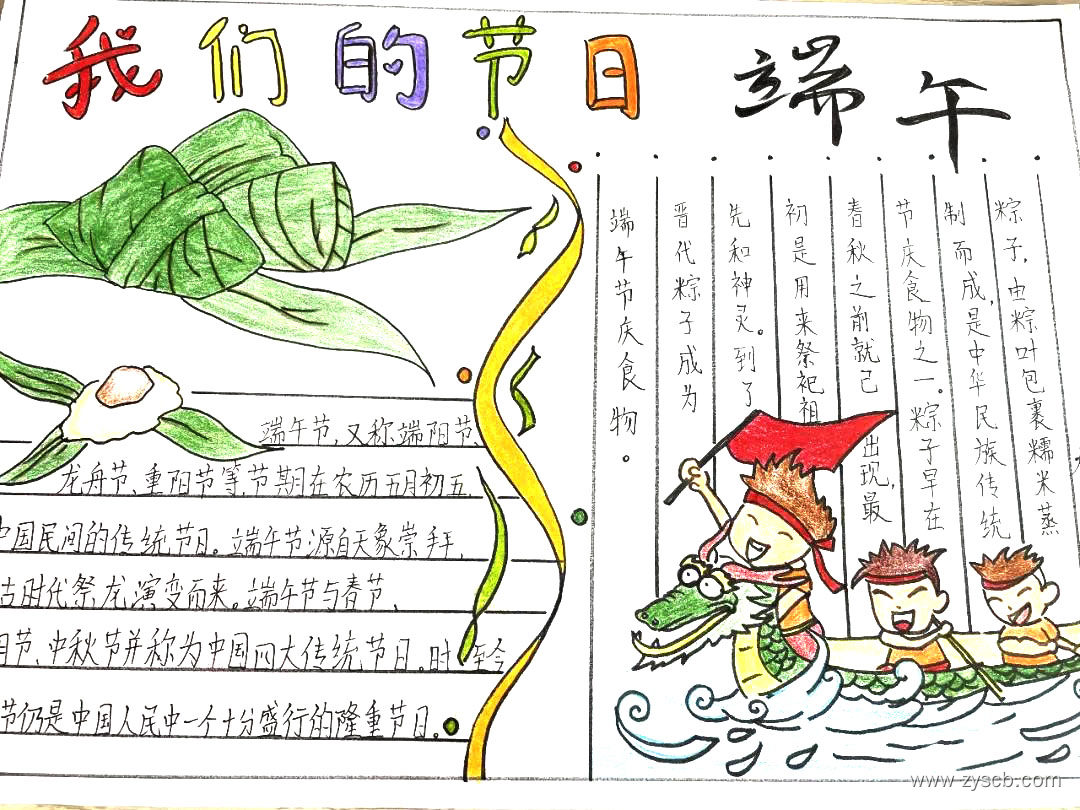 我们的节日
端午
端午节,又称端阳节、
龙舟节、重阳节等,节期在农历五月初五,
中国民间的传统节日。端午节源自天象崇拜,
古时代祭龙演变而来。端午节与春节、
明节、中秋节并称为中国四大传统节日。时至今
节仍是中国人民中一个十分盛行的隆重节日。
粽子,由粽叶包裹糯米蒸
制而成,是中华民族传统
节庆食物之一。粽子早在
春秋之前就已出现,最
初是用来祭祀祖
先和神灵。到了
晋代粽子成为
端午节庆食物。
www.zyseb.com